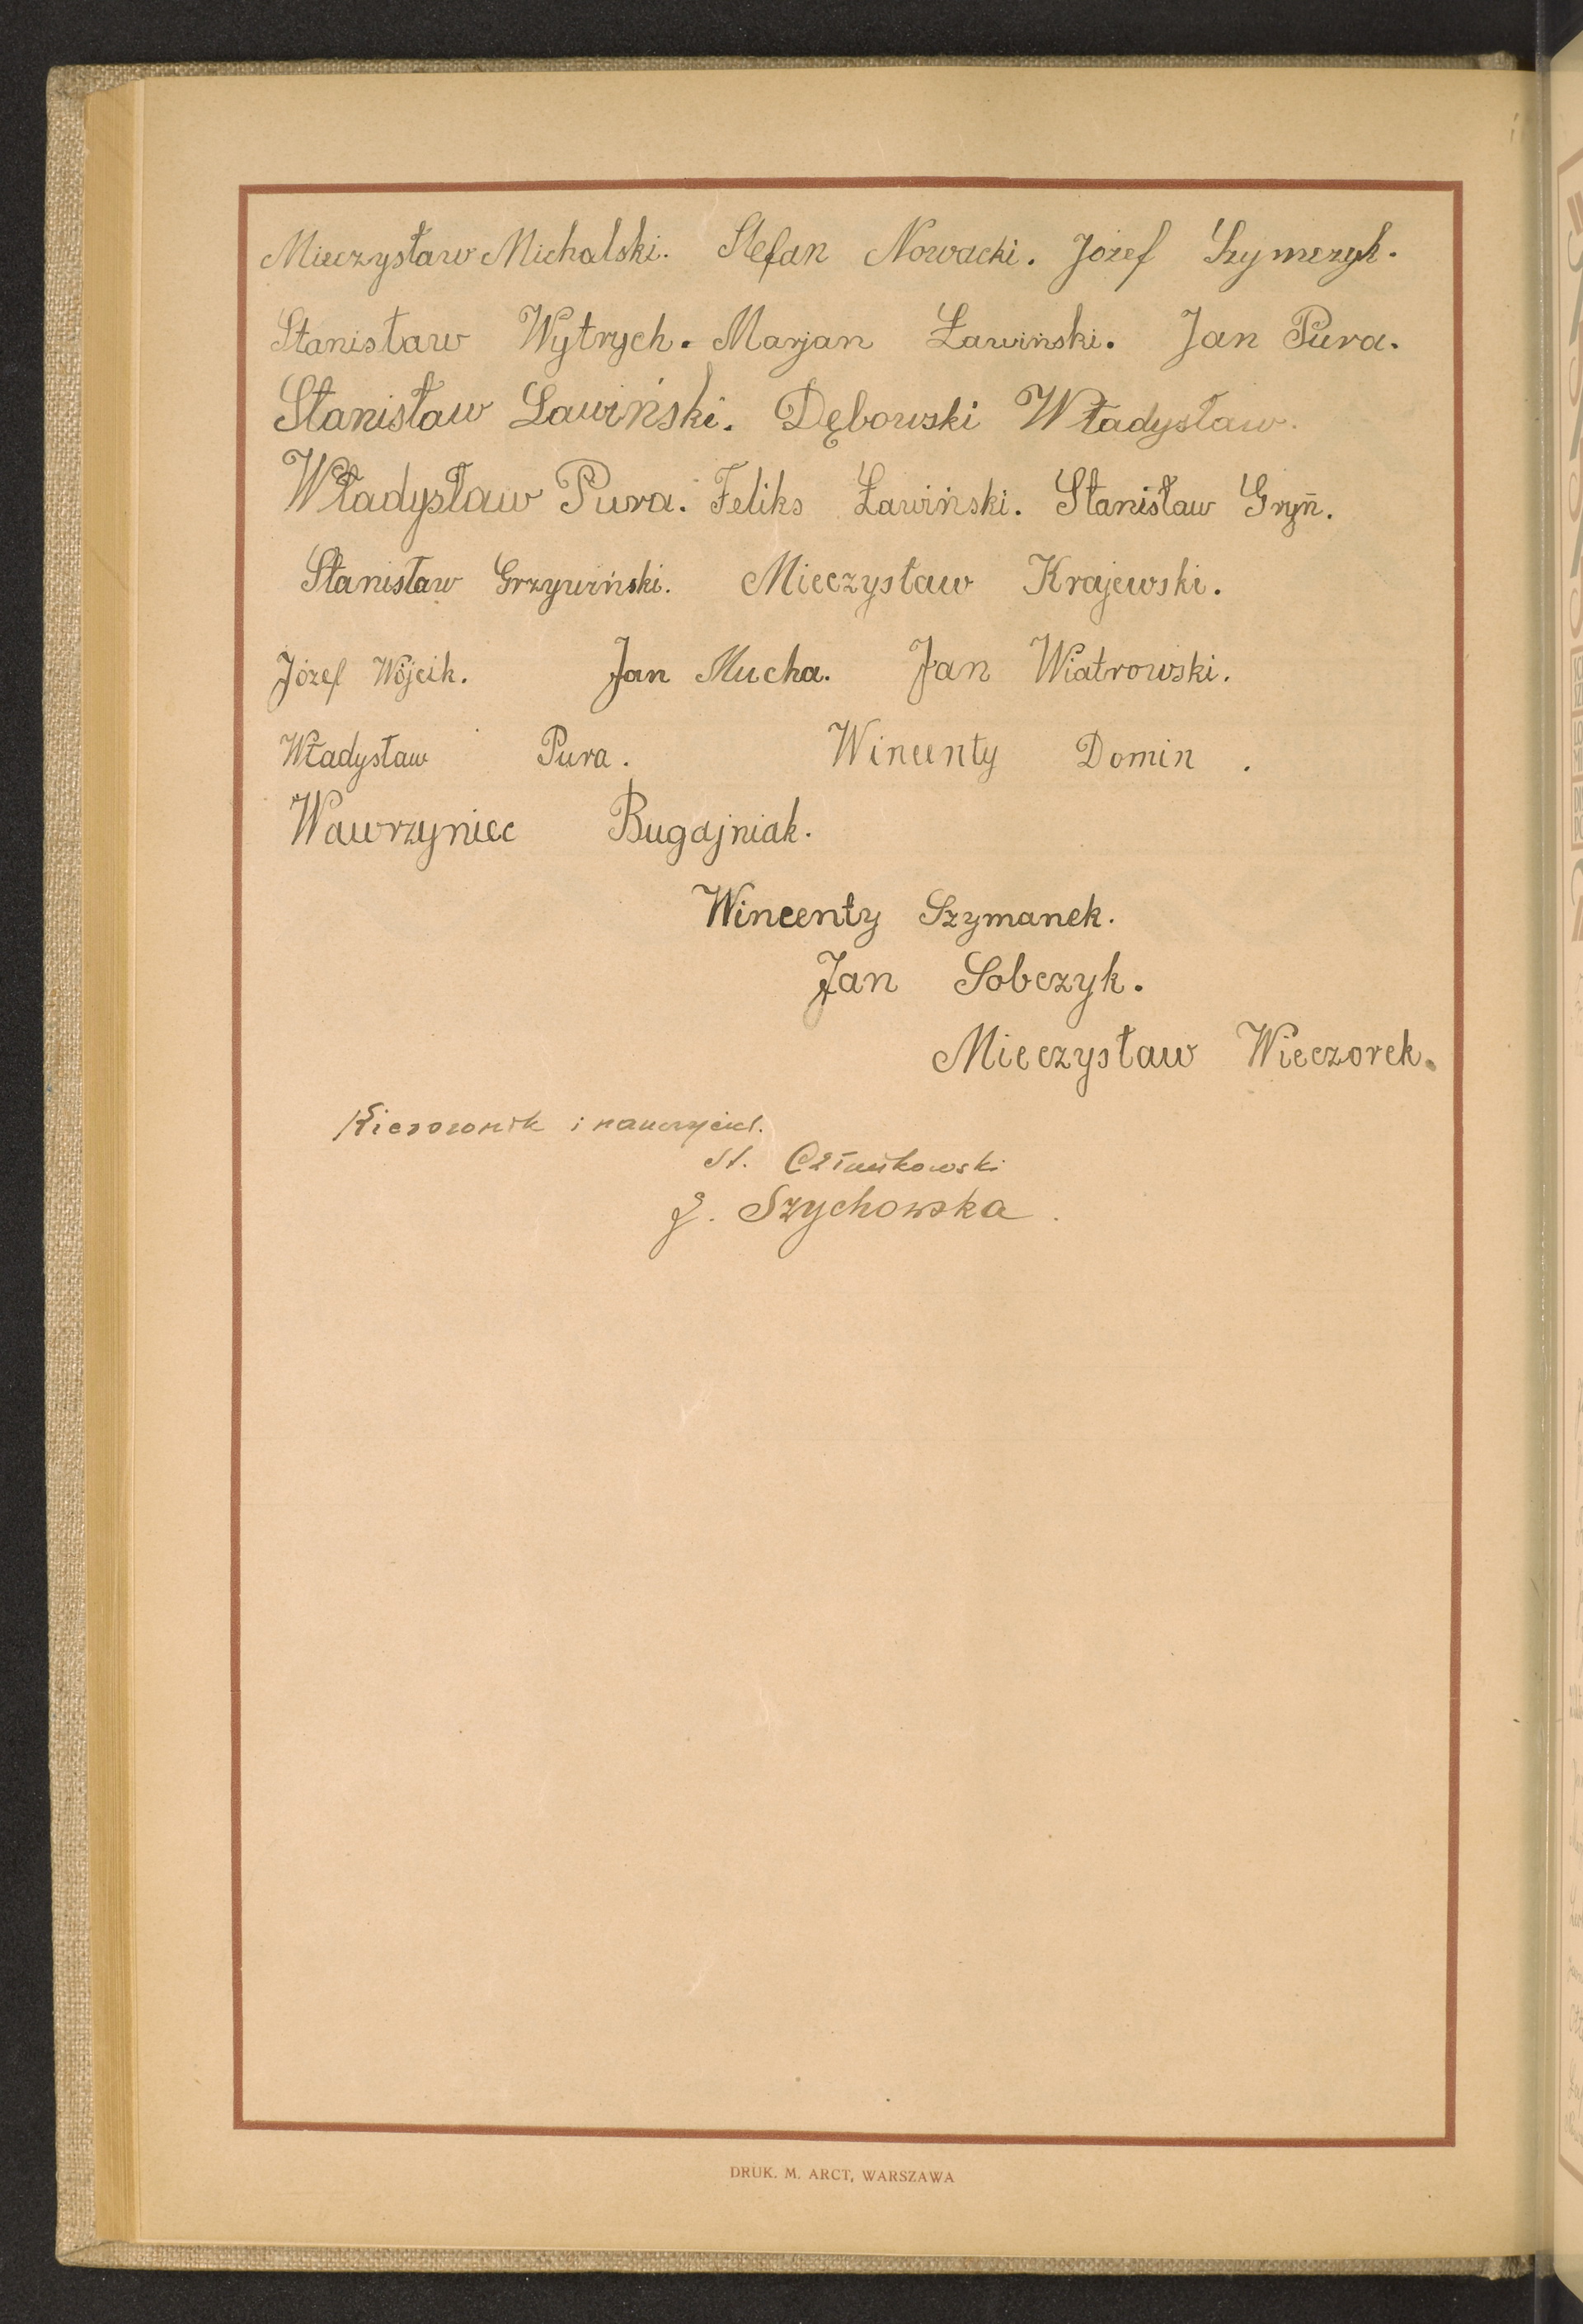 Mieczysław Michalski. Stefan Nowacki. Józef Szymczyk.
Stanisław Wytrych. Marjan Ławiński. Jan Pura.
Stanisław Ławiński. Dębowski Władysław.
Władysław Pura. Feliks Ławiński. Stanisław Gryń.
Stanisław Grzywiński. Mieczysław Krajewski.
Józef Wójcik. Jan Mucha. Jan Wiatrowski.
Władysław Pura. Wincenty Domin.
Wawrzyniec Bugajniak.
Wincenty Szymanek.
Jan Sobczyk.
Mieczysław Wieczorek.
Kierownik i nauczyciel.
St. Człunkowski
J. Szychowska.
DRUK. M. ARCT, WARSZAWA